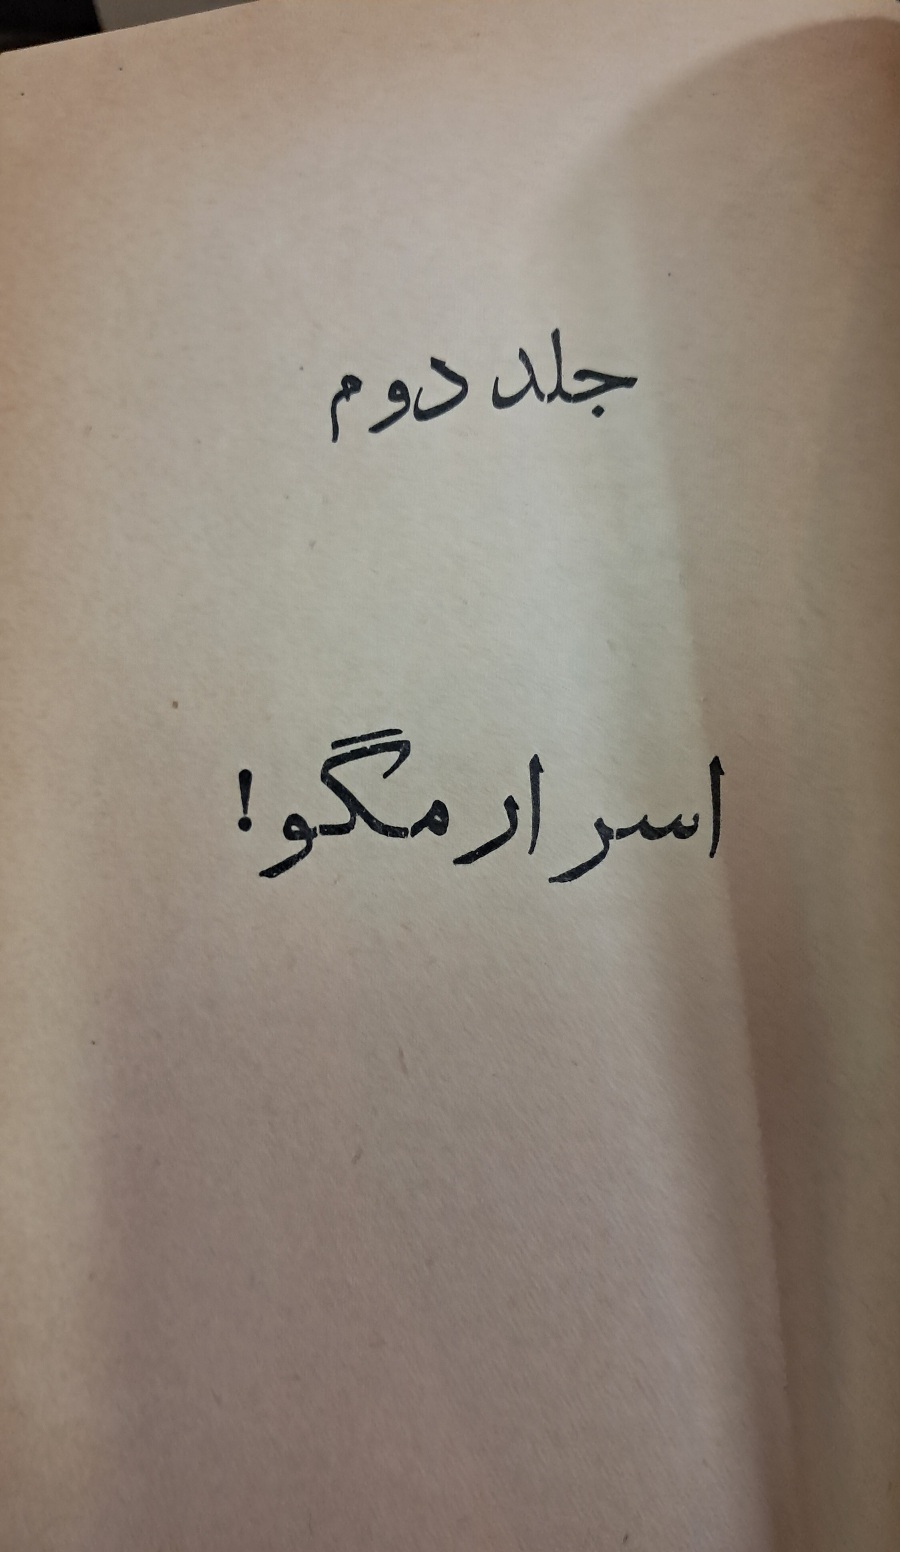 جلد دوم
اسرار مگو!